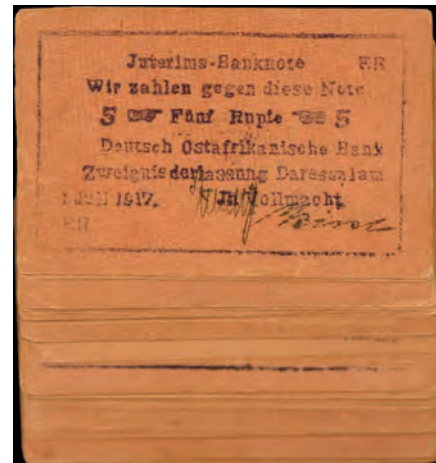 Interims-Banknote
Wir zahlen gegen diese Note
5 Fünf Rupie 5
Deutsch Ostafrikanische Bank
Zweigniederlassung Daressalam
1 Juli 1917. In Vollmacht